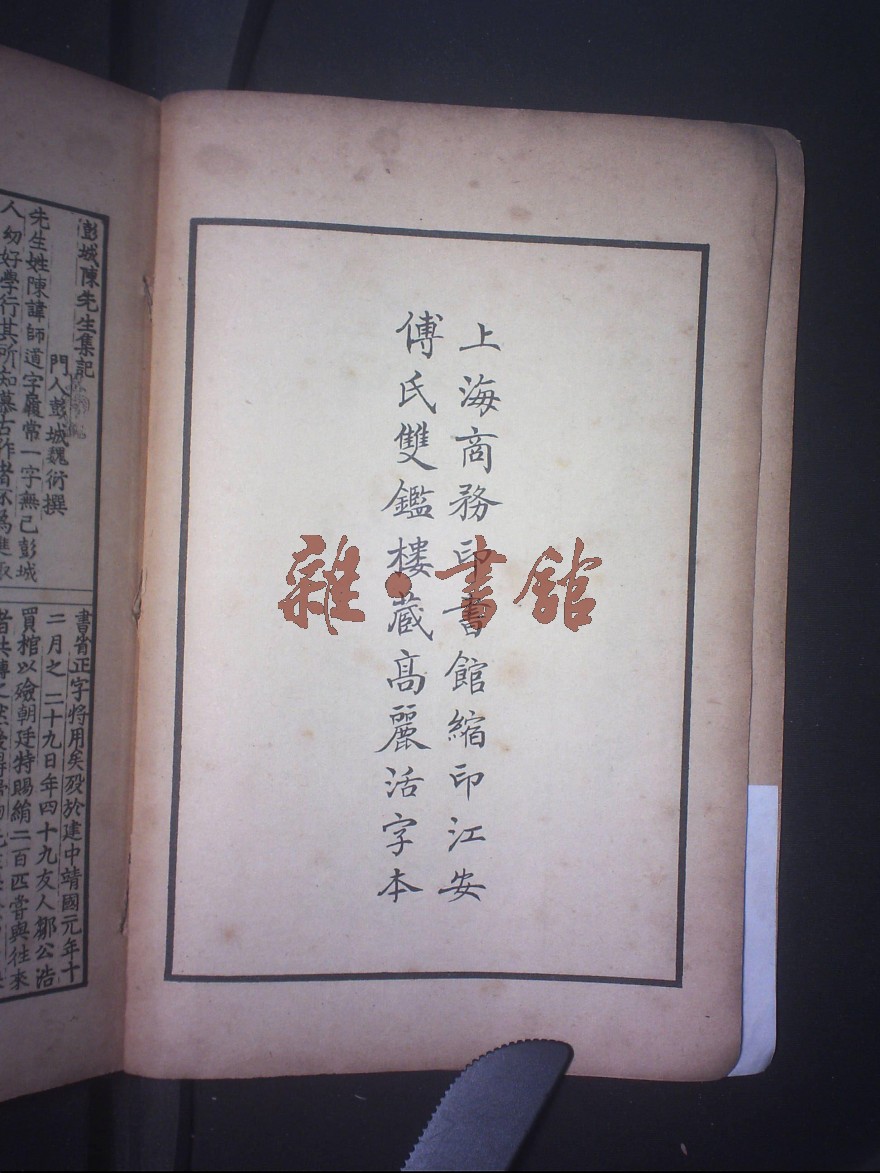 上海商務印書館縮印江安
傅氏雙鑑樓蔵高麗活字本
雜·書館
彭城陳先生集記
門人彭城魏衍撰
先生姓陳諱師道字履常一字無己彭城
人幼好學行其所知慕古作者不爲進取
書省正字將用矣殁於建中靖國元年十
二月之二十九日年四十九友人鄒公浩
買棺以殮朝廷特賜絹二百匹嘗與往來
者共賻之然後得歸